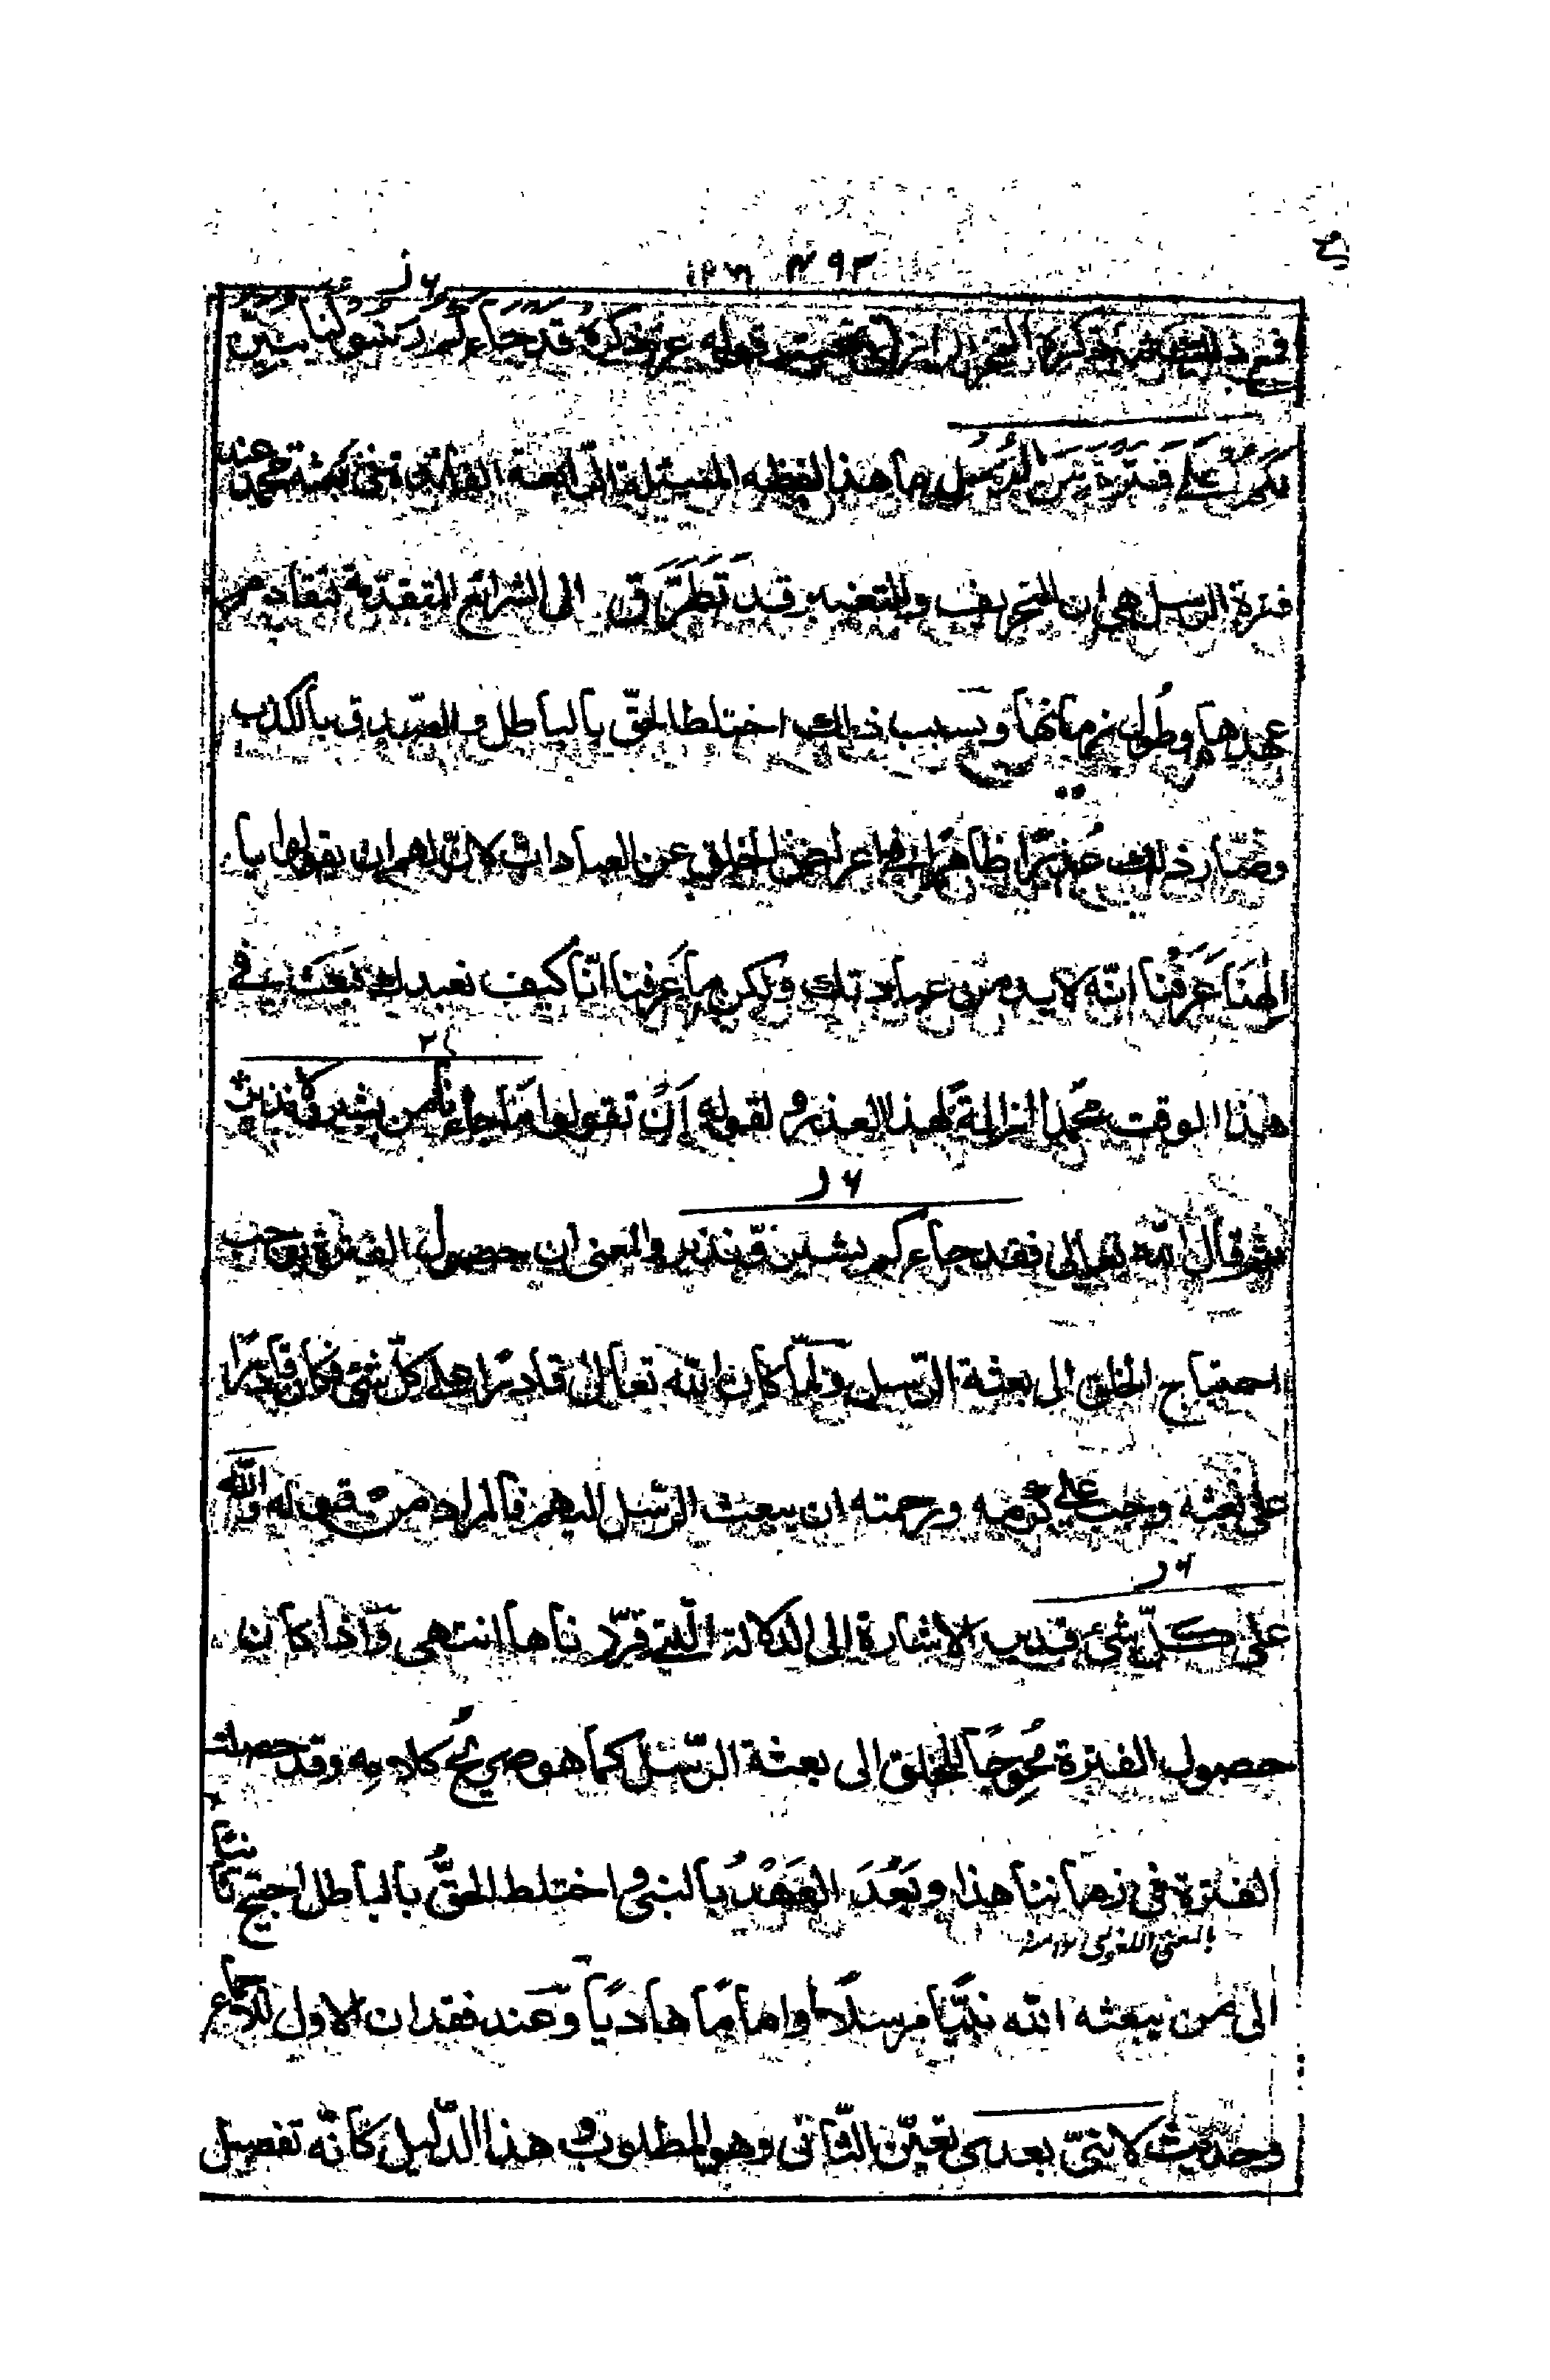 فمن ذلك ما ذكره الفخر الرازي تحت قوله عز ذكره قد جاءكم رسولنا يبين
لكم على فترة من الرسل ما هذا لفظه المسئلة الفائدة في بعثة محمد عند
فترة الرسل هي ان التحريف والتغيير قد تَطَرَّق الى الشرائع المتقدّمة لتقادم
عهدها وطُول زمانها وبسبب ذلك اختلط الحقّ بالباطل والصّدق بالكذب
وصار ذلك عُذرًا ظاهرًا في اعراض الخلق عن العبادات لانّ لهم ان يقولوا يا
اِلٰهنَا عَرَفْنا انّه لا بد من عبادتك ولكن ما عَرفنا انّا كيف نعبدك فبعَث في
هذا الوقت محمّدا ازالة لهذا العذر ولقوله اَنْ تقولوا مَا جاءنا من بشير ولا نذير
ثمّ قال الله تعالى فقد جاءكم بشير وّنذير والمعنى ان حصول الفترة يوجب
احتياج الخلق الى بعثة الرّسل ولمّا كان الله تعالى قادرًا على كلّ شئ فكان قادرًا
على بعثه وجب على كرمه ورحمته ان يبعث الرّسل اليهم فالمراد من قوله والله
على كلّ شئ قدير الاشارة الى الدلالة الّتي قرّرناها انتهى وَاذا كان
حصول الفترة مُحوِجًا للخلق الى بعثة الرّسل كما هو صريحُ كلامِه وقد حصلت
الفترة في زماننا هذا وبَعُدَ العَهْدُ بالنبي واختلط الحقُّ بالباطل احتيج
بالمعنى اللغوي ١٢ منه
الى من يبعثه الله نبيّا مرسلًا او امامًا هاديًا وعند فقدان الاول للاجماع
وحديث لا نبيّ بعدي تعيّن الثّاني وهو المطلوب وهذا الدّليل كانّه تفصيل